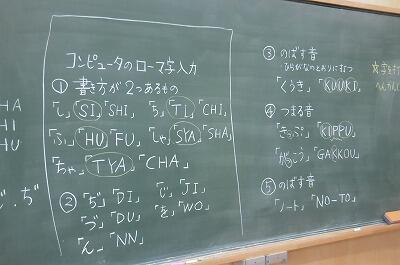 HA
HI
HU
じ".ぢ"
コンピュータのローマ字入力
① 書き方が2つあるもの
「し」「SI」「SHI」 「ち」「TI」「CHI」
「ふ」「HU」「FU」 「しゃ」「SYA」「SHA」
「ちゃ」「TYA」「CHA」
② 「ぢ」「DI」 「じ」「JI」
「づ」「DU」 「を」「WO」
「ん」「NN」
③ のばす音
ひらがなのとおりにうつ
「くうき」「KUUKI」
④ つまる音
「きっぷ」「KIPPU」
「がっこう」「GAKKOU」
⑤ のばす音
「ノート」「NO-TO」
文字を打
へんかん